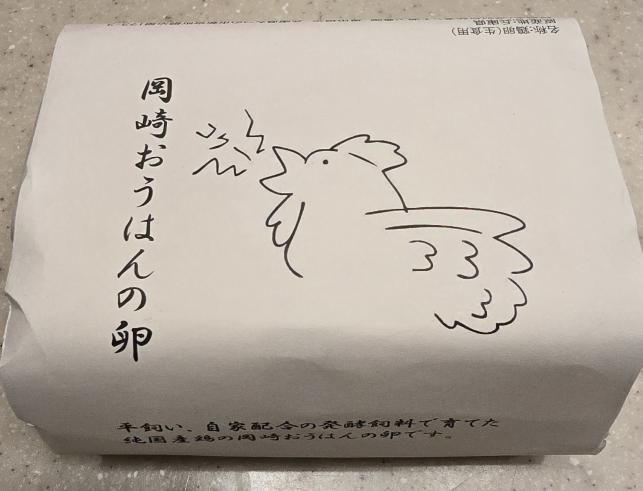 岡崎おうはんの卵
平飼い、自家配合の発酵飼料で育てた
純国産鶏の岡崎おうはんの卵です。
名称:鶏卵(生食用)
原産地:兵庫県